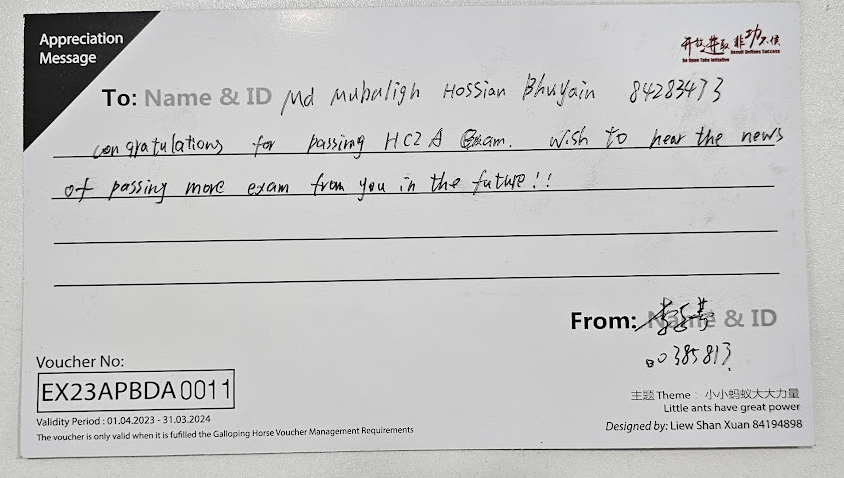 Appreciation
Message
开放进取 非功不侯
Be Open Take Initiative Result Defines Success
To: Name & ID Md Mubaligh Hossian Bhuyain 84283473
congratulations for passing HC2A Exam. Wish to hear the news
of passing more exam from you in the future!!
From: Name & ID
00385813
Voucher No:
EX23APBDA0011
Validity Period : 01.04.2023 - 31.03.2024
The voucher is only valid when it is fufilled the Galloping Horse Voucher Management Requirements
主题 Theme : 小小蚂蚁大大力量
Little ants have great power
Designed by: Liew Shan Xuan 84194898